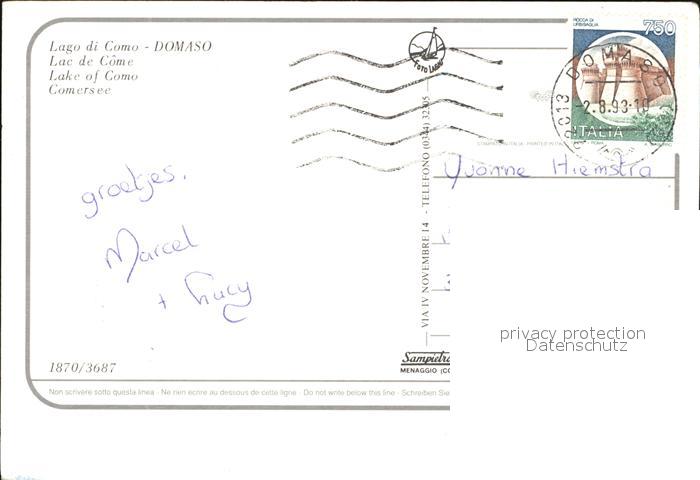 Lago di Como - DOMASO
Lac de Côme
Lake of Como
Comersee
FOTO LARIO
ROCCA DI URBISAGLIA
750
ITALIA
22013 DOMASO
-2.8.93-10
Yvonne Hiemstra
groetjes.
Marcel
+ Lucy
VIA IV NOVEMBRE 14 - TELEFONO (0344) 32205
Sampietro
MENAGGIO (CO
1870/3687
Non scrivere sotto questa linea - Ne rien ecrire au dessous de cette ligne - Do not write below this line - Schreiben Sie
privacy protection
Datenschutz